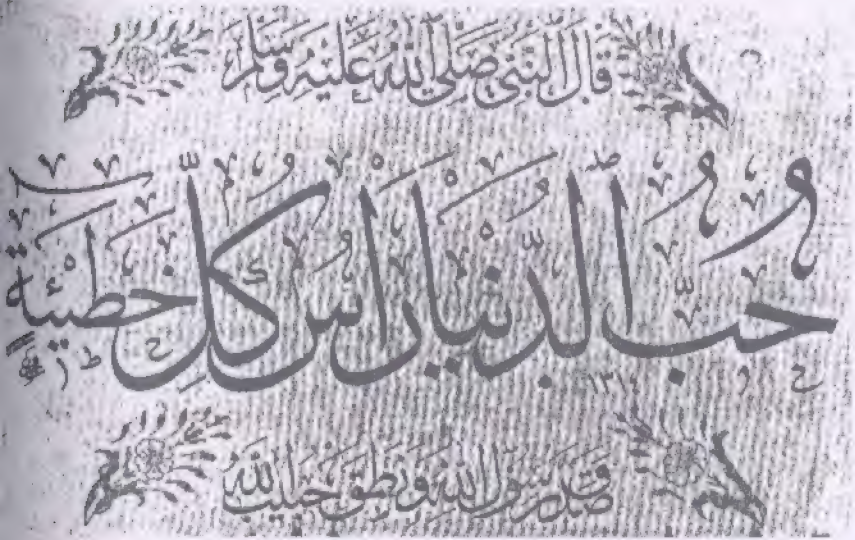 قَالَ النَّبِيُّ صَلَّى اللّٰهُ عَلَيْهِ وَسَلَّمَ
حُبُّ الدُّنْيَا رَأْسُ كُلِّ خَطِيئَةٍ
١٣١٤
صَدَقَ رَسُولُ اللّٰهِ وَنَطَقَ حَبِيبُ اللّٰهِ